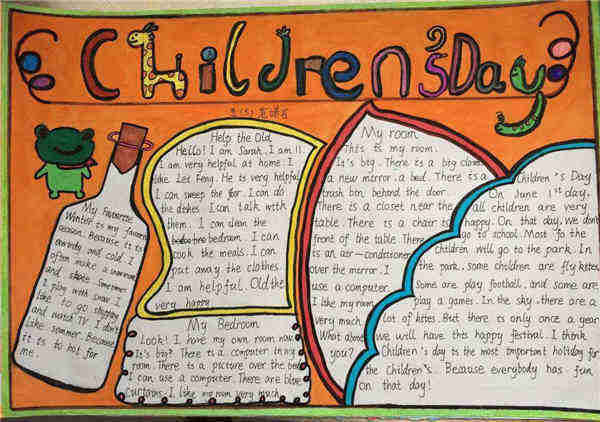 Children'sDay
My Favourite
Winter is my favourite
season. Because it is
and cold. I
often make a snowman
and skate. Sometimes
I play with snow. I
like to go shopping
and watch TV. I don't
like summer. Because
it is to hot for
me.
Help the Old
Hello! I am Sarah. I am 11.
I am very helpful at home. I
like Lei Feng. He is very helpful
I can sweep the floor. I can do
the dishes. I can talk with
them. I can clean the
bedroom. I can
cook the meals. I can
put away the clothes.
I am helpful. Old the
very happy
My Bedroom
Look! I have my own room now.
It's big? There is a computer in my
room. There is a picture over the bed
I can use a computer. There are blue
curtains. I like my room very much.
My room
This is my room.
It's big. There is a big closet
a new mirror, a bed. There is a
trash bin behind the door.
There is a closet near the
table. There is a chair is
front of the table. There
is an air-conditioner
over the mirror. I
use a computer.
I like my room
very much.
What about
you?
Children's Day
On June 1st day,
all children are very
happy. On that day, we don't
go to school. Most fo the
children will go to the park. In
the park, some children are fly kites,
Some are play football, and some are
play a games. In the sky, there are a
lot of kites. But there is only once a year
we will have this happy festival. I think
Children's day is the most important holiday for
the Children's. Because everybody has fun
on that day!